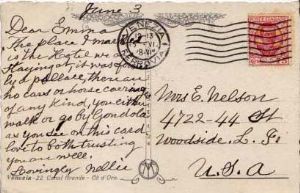 June 3
Dear Emma
The place I
is the Hotel we
staying at, it was
by a pallace, there are
no cars or horse
of any kind, you either
walk or go by Gondola
as you see on this card
love to both trusting
you are well.
Lovingly Nellie
VENEZIA
FERROVIA
Mrs E. Nelson
4722-44 St
Woodside L. I.
U.S.A
Venezia - 22. Canal Grande - Cà d'Oro